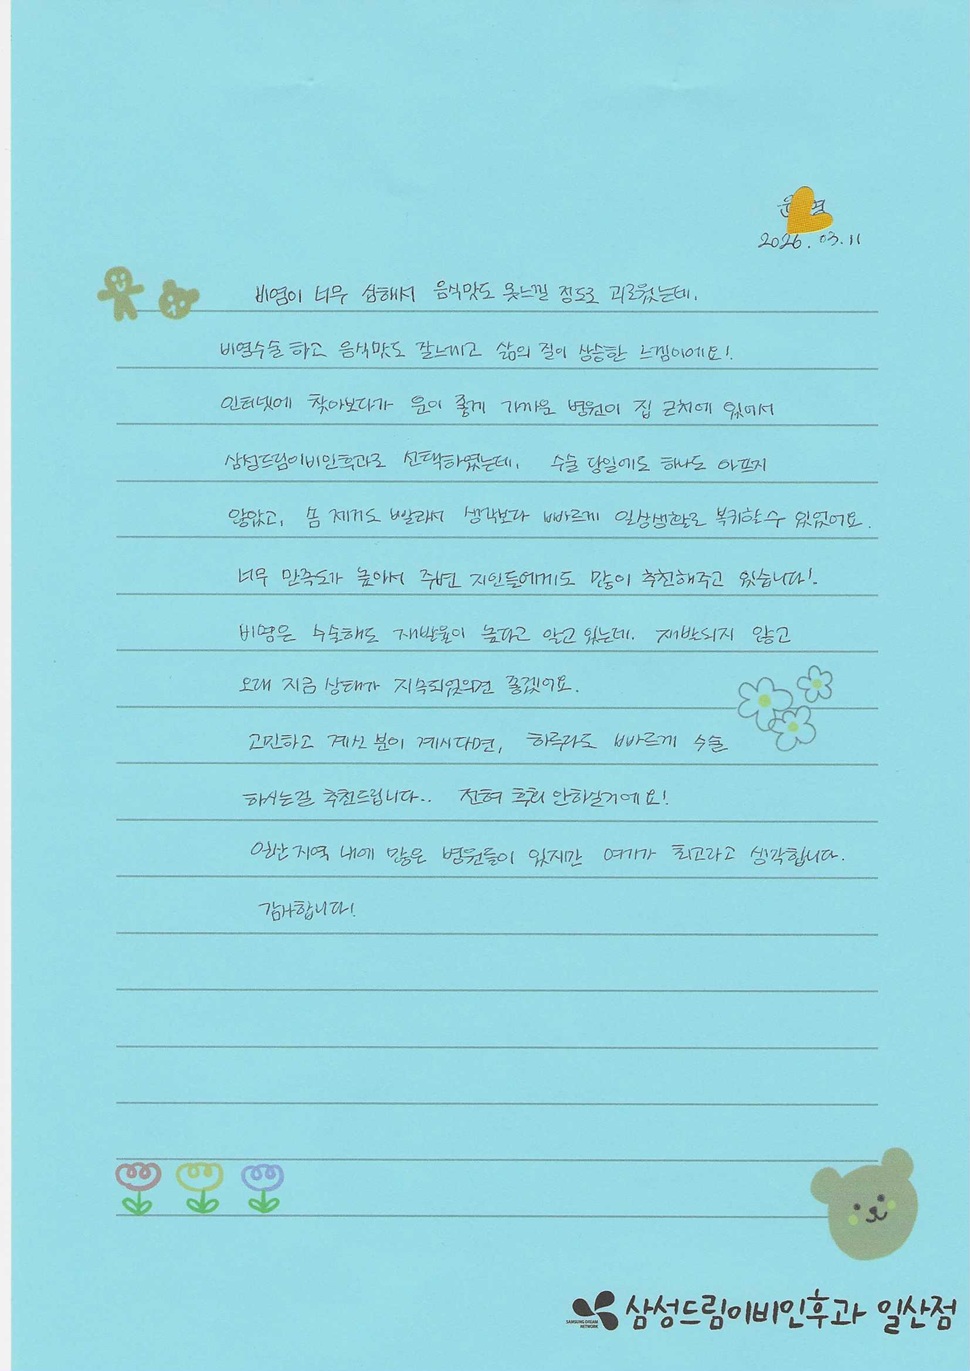 2026. 03. 11
비염이 너무 심해서 음식맛도 못느낄 정도로 괴로웠는데,
비염수술 하고 음식맛도 잘느끼고 삶의 질이 상승한 느낌이에요!
인터넷에 찾아보다가 운이 좋게 가까운 병원이 집 근처에 있어서
삼성드림이비인후과로 선택하였는데, 수술 당일에도 하나도 아프지
않았고, 솜 제거도 빨라서 생각보다 빠르게 일상생활로 복귀할수 있었어요.
너무 만족도가 높아서 주변 지인들에게도 많이 추천해주고 있습니다!
비염은 수술해도 재발율이 높다고 알고 있는데, 재발되지 않고
오래 지금 상태가 지속되었으면 좋겠어요.
고민하고 계신 분이 계시다면, 하루라도 빠르게 수술
하시는걸 추천드립니다.. 전혀 후회 안하실거에요!
일산 지역 내에 많은 병원들이 있지만 여기가 최고라고 생각합니다.
감사합니다!
SAMSUNG DREAM
NETWORK
삼성드림이비인후과 일산점